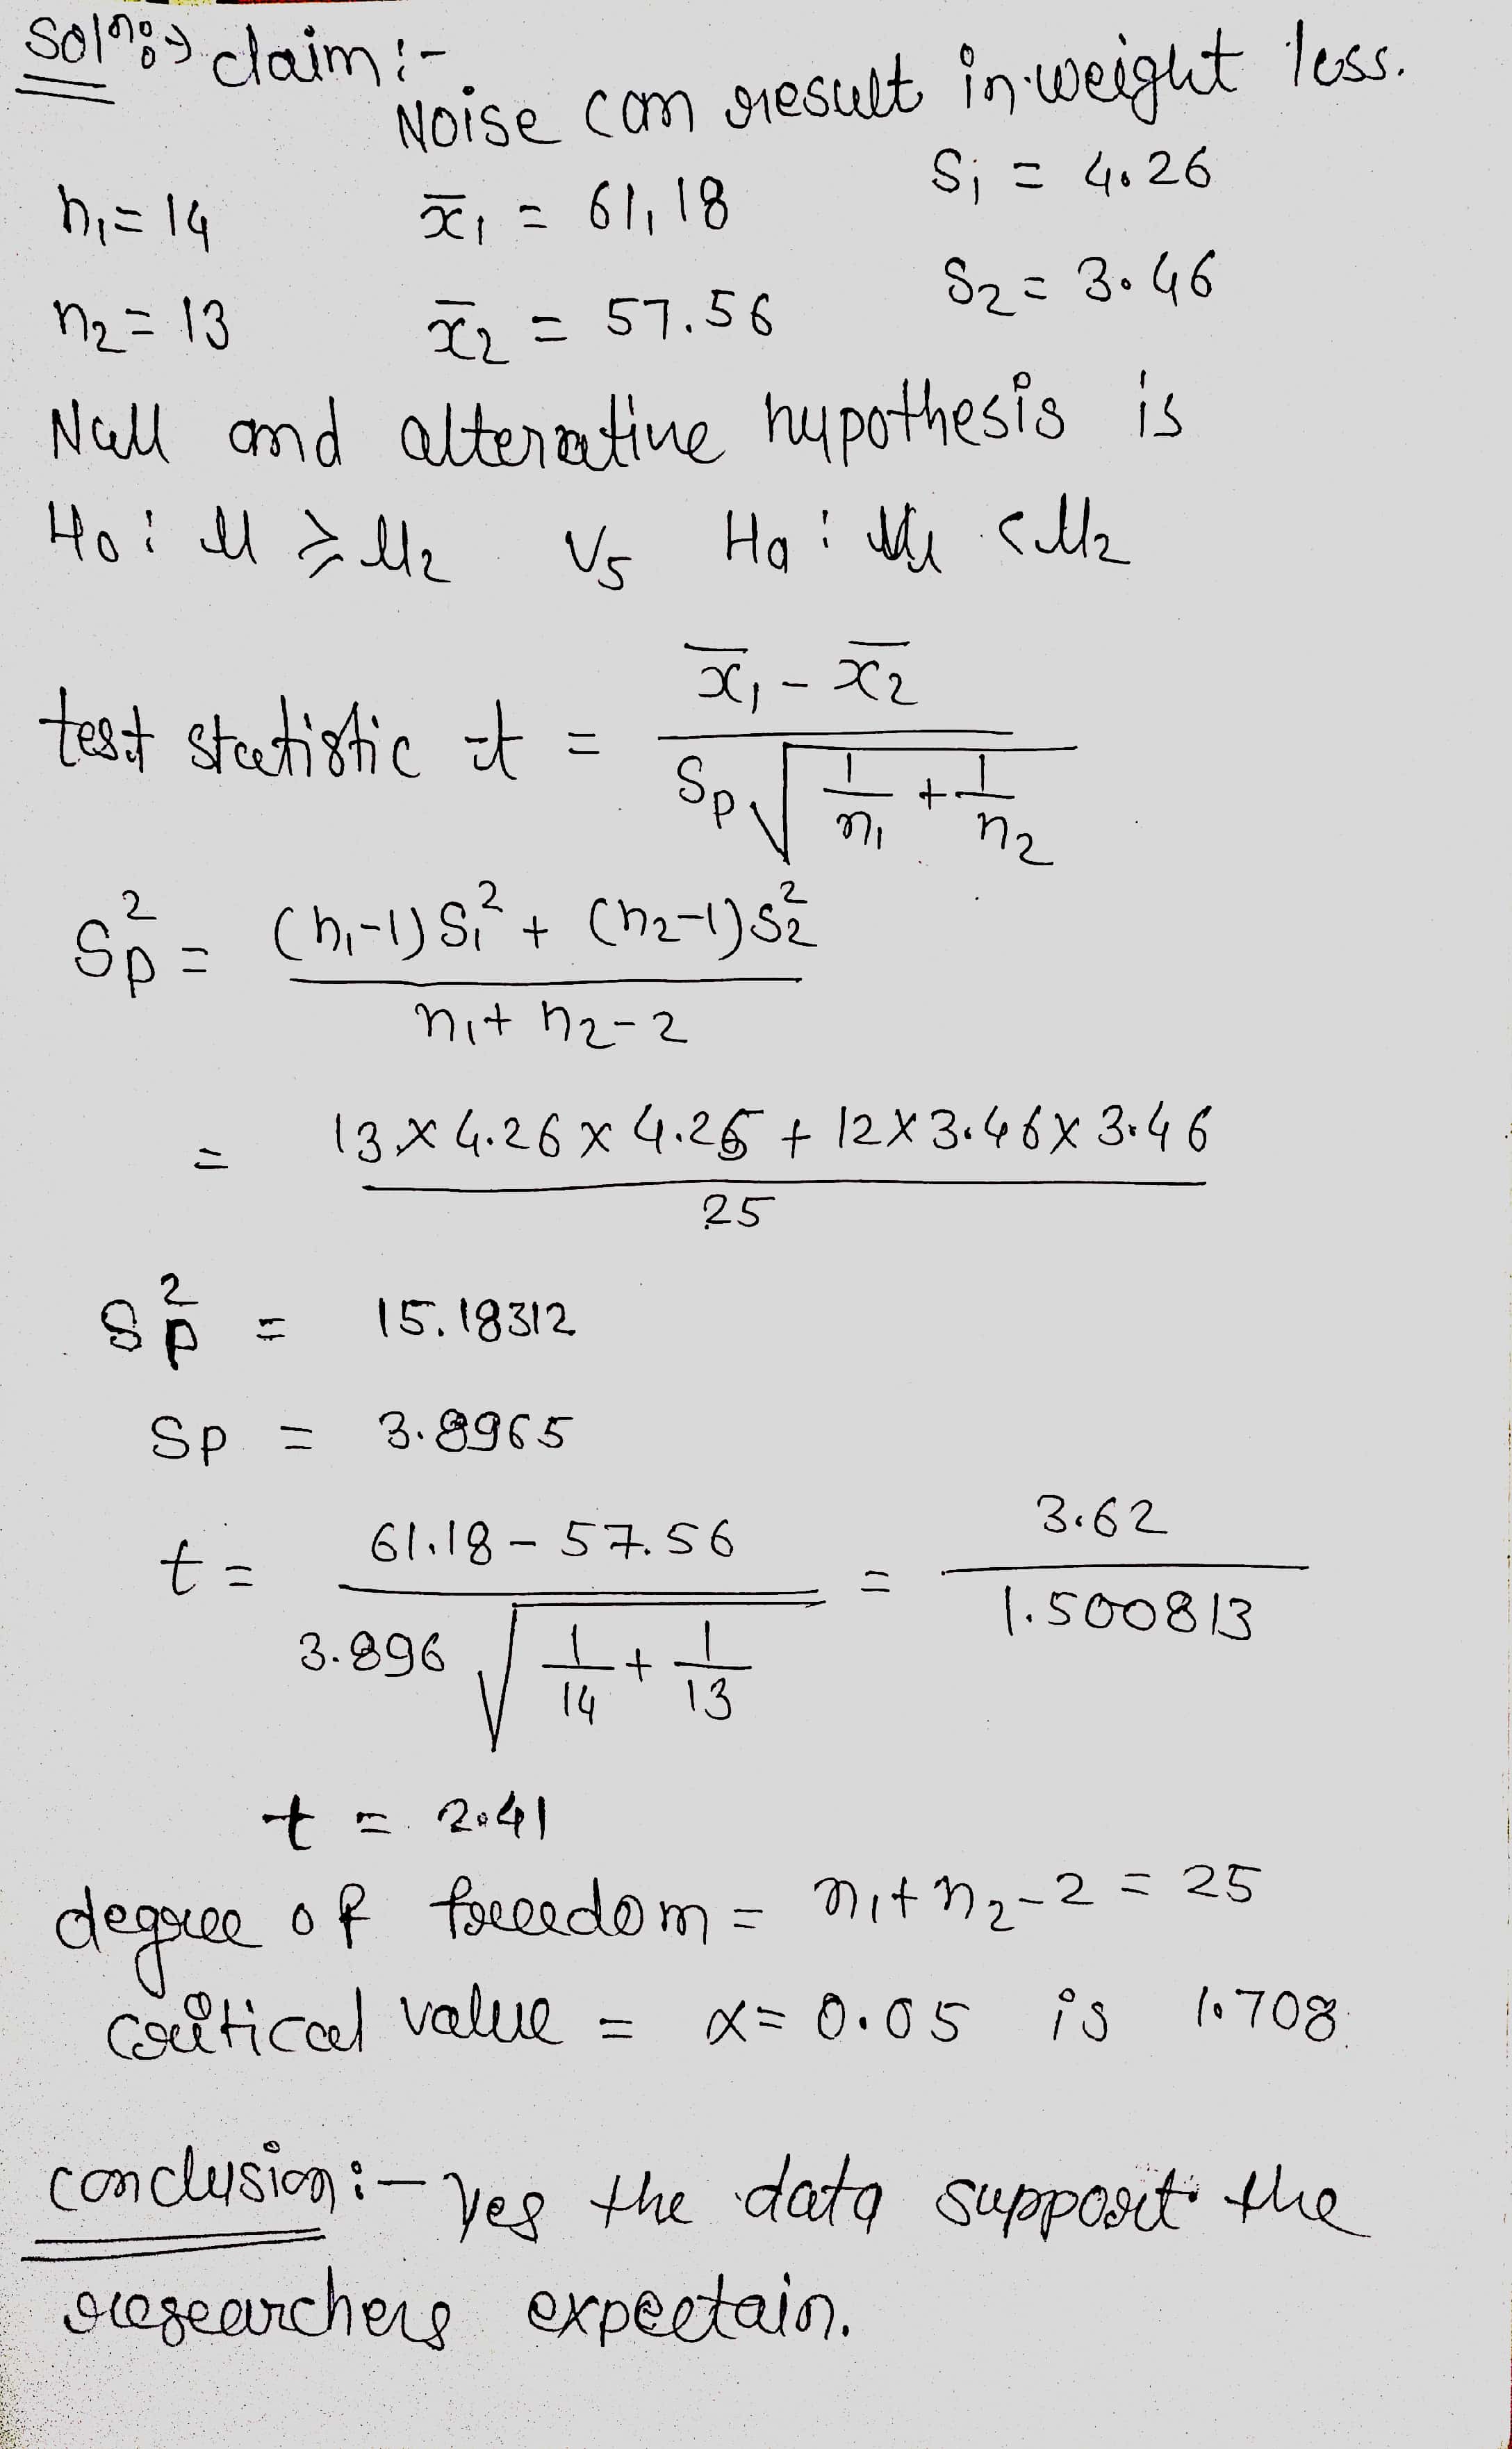 Solⁿ:→ claim:-
Noise can result in weight loss.
n₁ = 14    x̄₁ = 61,18    S₁ = 4.26
n₂ = 13    x̄₂ = 57.56    S₂ = 3.46
Null and alternative hypothesis is
H₀ : μ ≥ μ₂ Vs Ha : μ₁ < μ₂
test statistic t = (x̄₁ - x̄₂) / (Sp √(1/n₁ + 1/n₂))
Sp² = ((n₁-1)S₁² + (n₂-1)S₂²) / (n₁+n₂-2)
= (13 × 4.26 × 4.26 + 12 × 3.46 × 3.46) / 25
Sp² = 15.18312
Sp = 3.8965
t = (61.18 - 57.56) / (3.896 √(1/14 + 1/13)) = 3.62 / 1.500813
t = 2.41
degree of freedom = n₁+n₂-2 = 25
critical value = α = 0.05 is 1.708
conclusion:- Yes the data support the
researchers expectain.